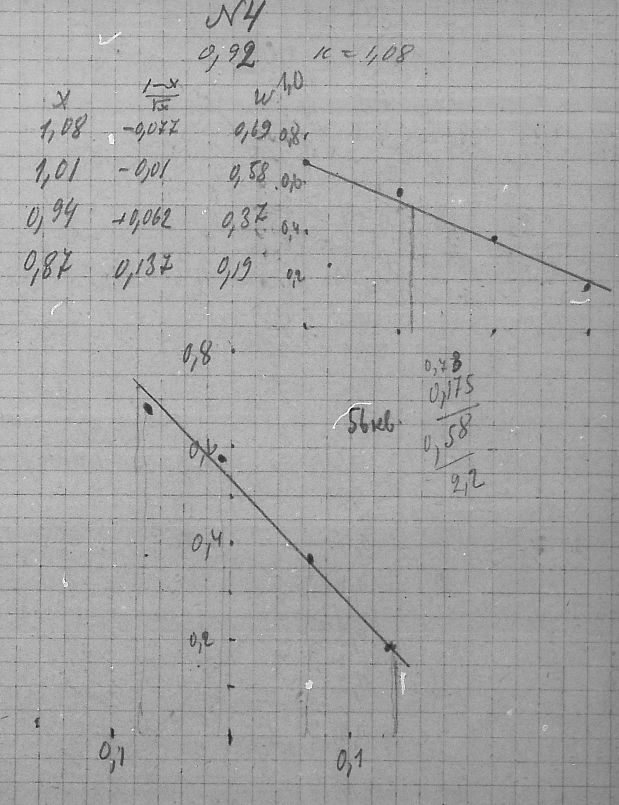 N4
0,92 к = 1,08
x (1-x)/√x w
1,08 -0,077 0,69
1,01 -0,01 0,58
0,94 +0,062 0,37
0,87 0,137 0,19
1,0
0,8
0,6
0,4
0,2
0,8
0,6
0,4
0,2
0,1 0,1
0,78
0,175
0,58
2,2